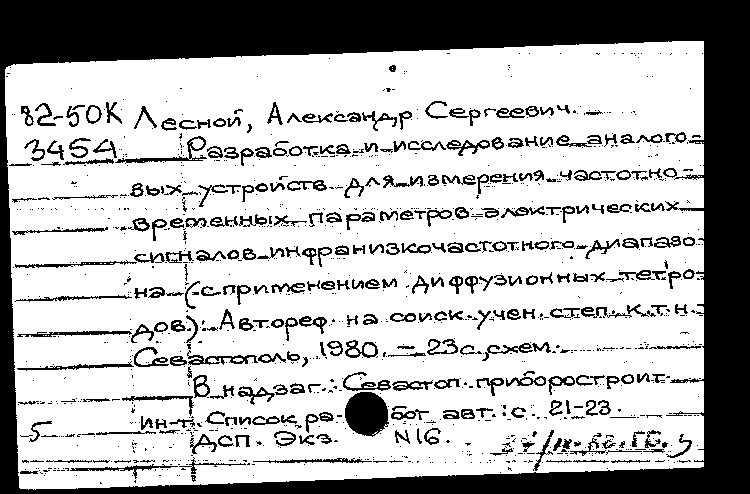 82-50К Лесной, Александр Сергеевич. –
3454 Разработка и исследование аналого-
вых устройств для измерения частотно-
временных параметров электрических
сигналов инфранизкочастотного диапазо-
на (с применением диффузионных тетро-
дов): Автореф. на соиск. учен. степ. к.т.н.
Севастополь, 1980. – 23 с. схем.
В надзаг.: Севастоп. приборостроит.
ин-т. Список работ авт.: с. 21-23.
5
ДСП. Экз. N16.